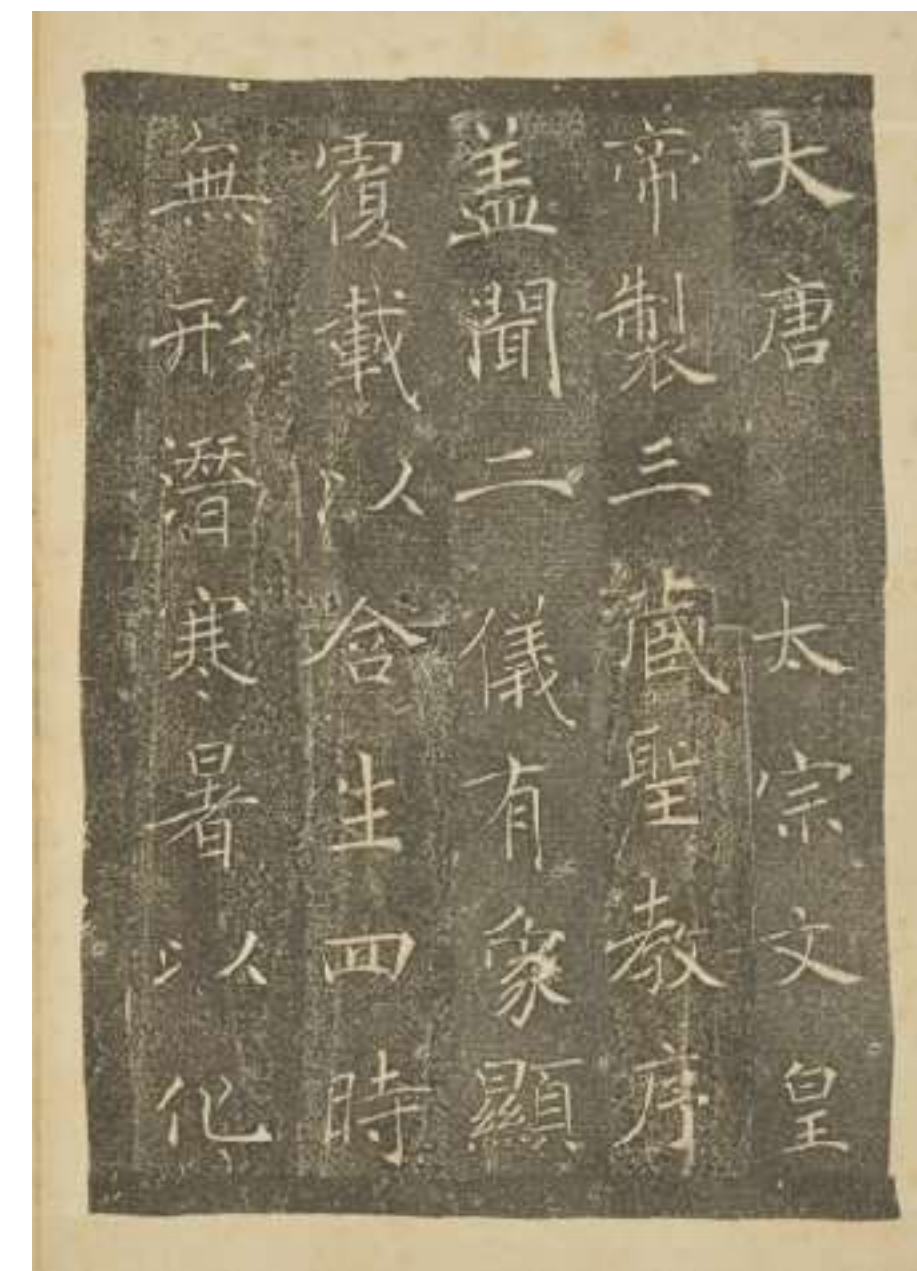 大唐 太宗文皇
帝製三藏聖教序
盖聞二儀有象顯
覆載以含生四時
無形潛寒暑以化